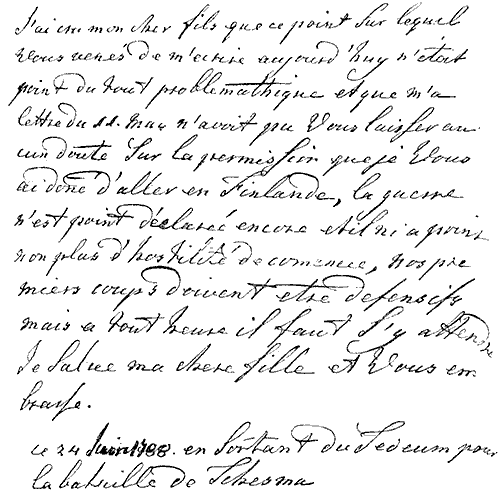 J'ai cru mon cher fils que ce point sur lequel
vous venés de m'ecrire aujourd'huy n'était
point du tout problemathique et que m'a
lettre du 11. may n'avoit pu vous laisser au
cun doute sur la permission que je vous
ai donc d'aller en Finlande, la guerre
n'est point déclareé encore et il ni a point
non plus d'hostilité de comencé, nos pre
miers coups doivent etre defensifs
mais a tout heure il faut s'y attendre
Je salue ma chere fille et vous em
brasse.
ce 24 Juin 1788. en sortant du Tedeum pour
la bataille de Tchesma